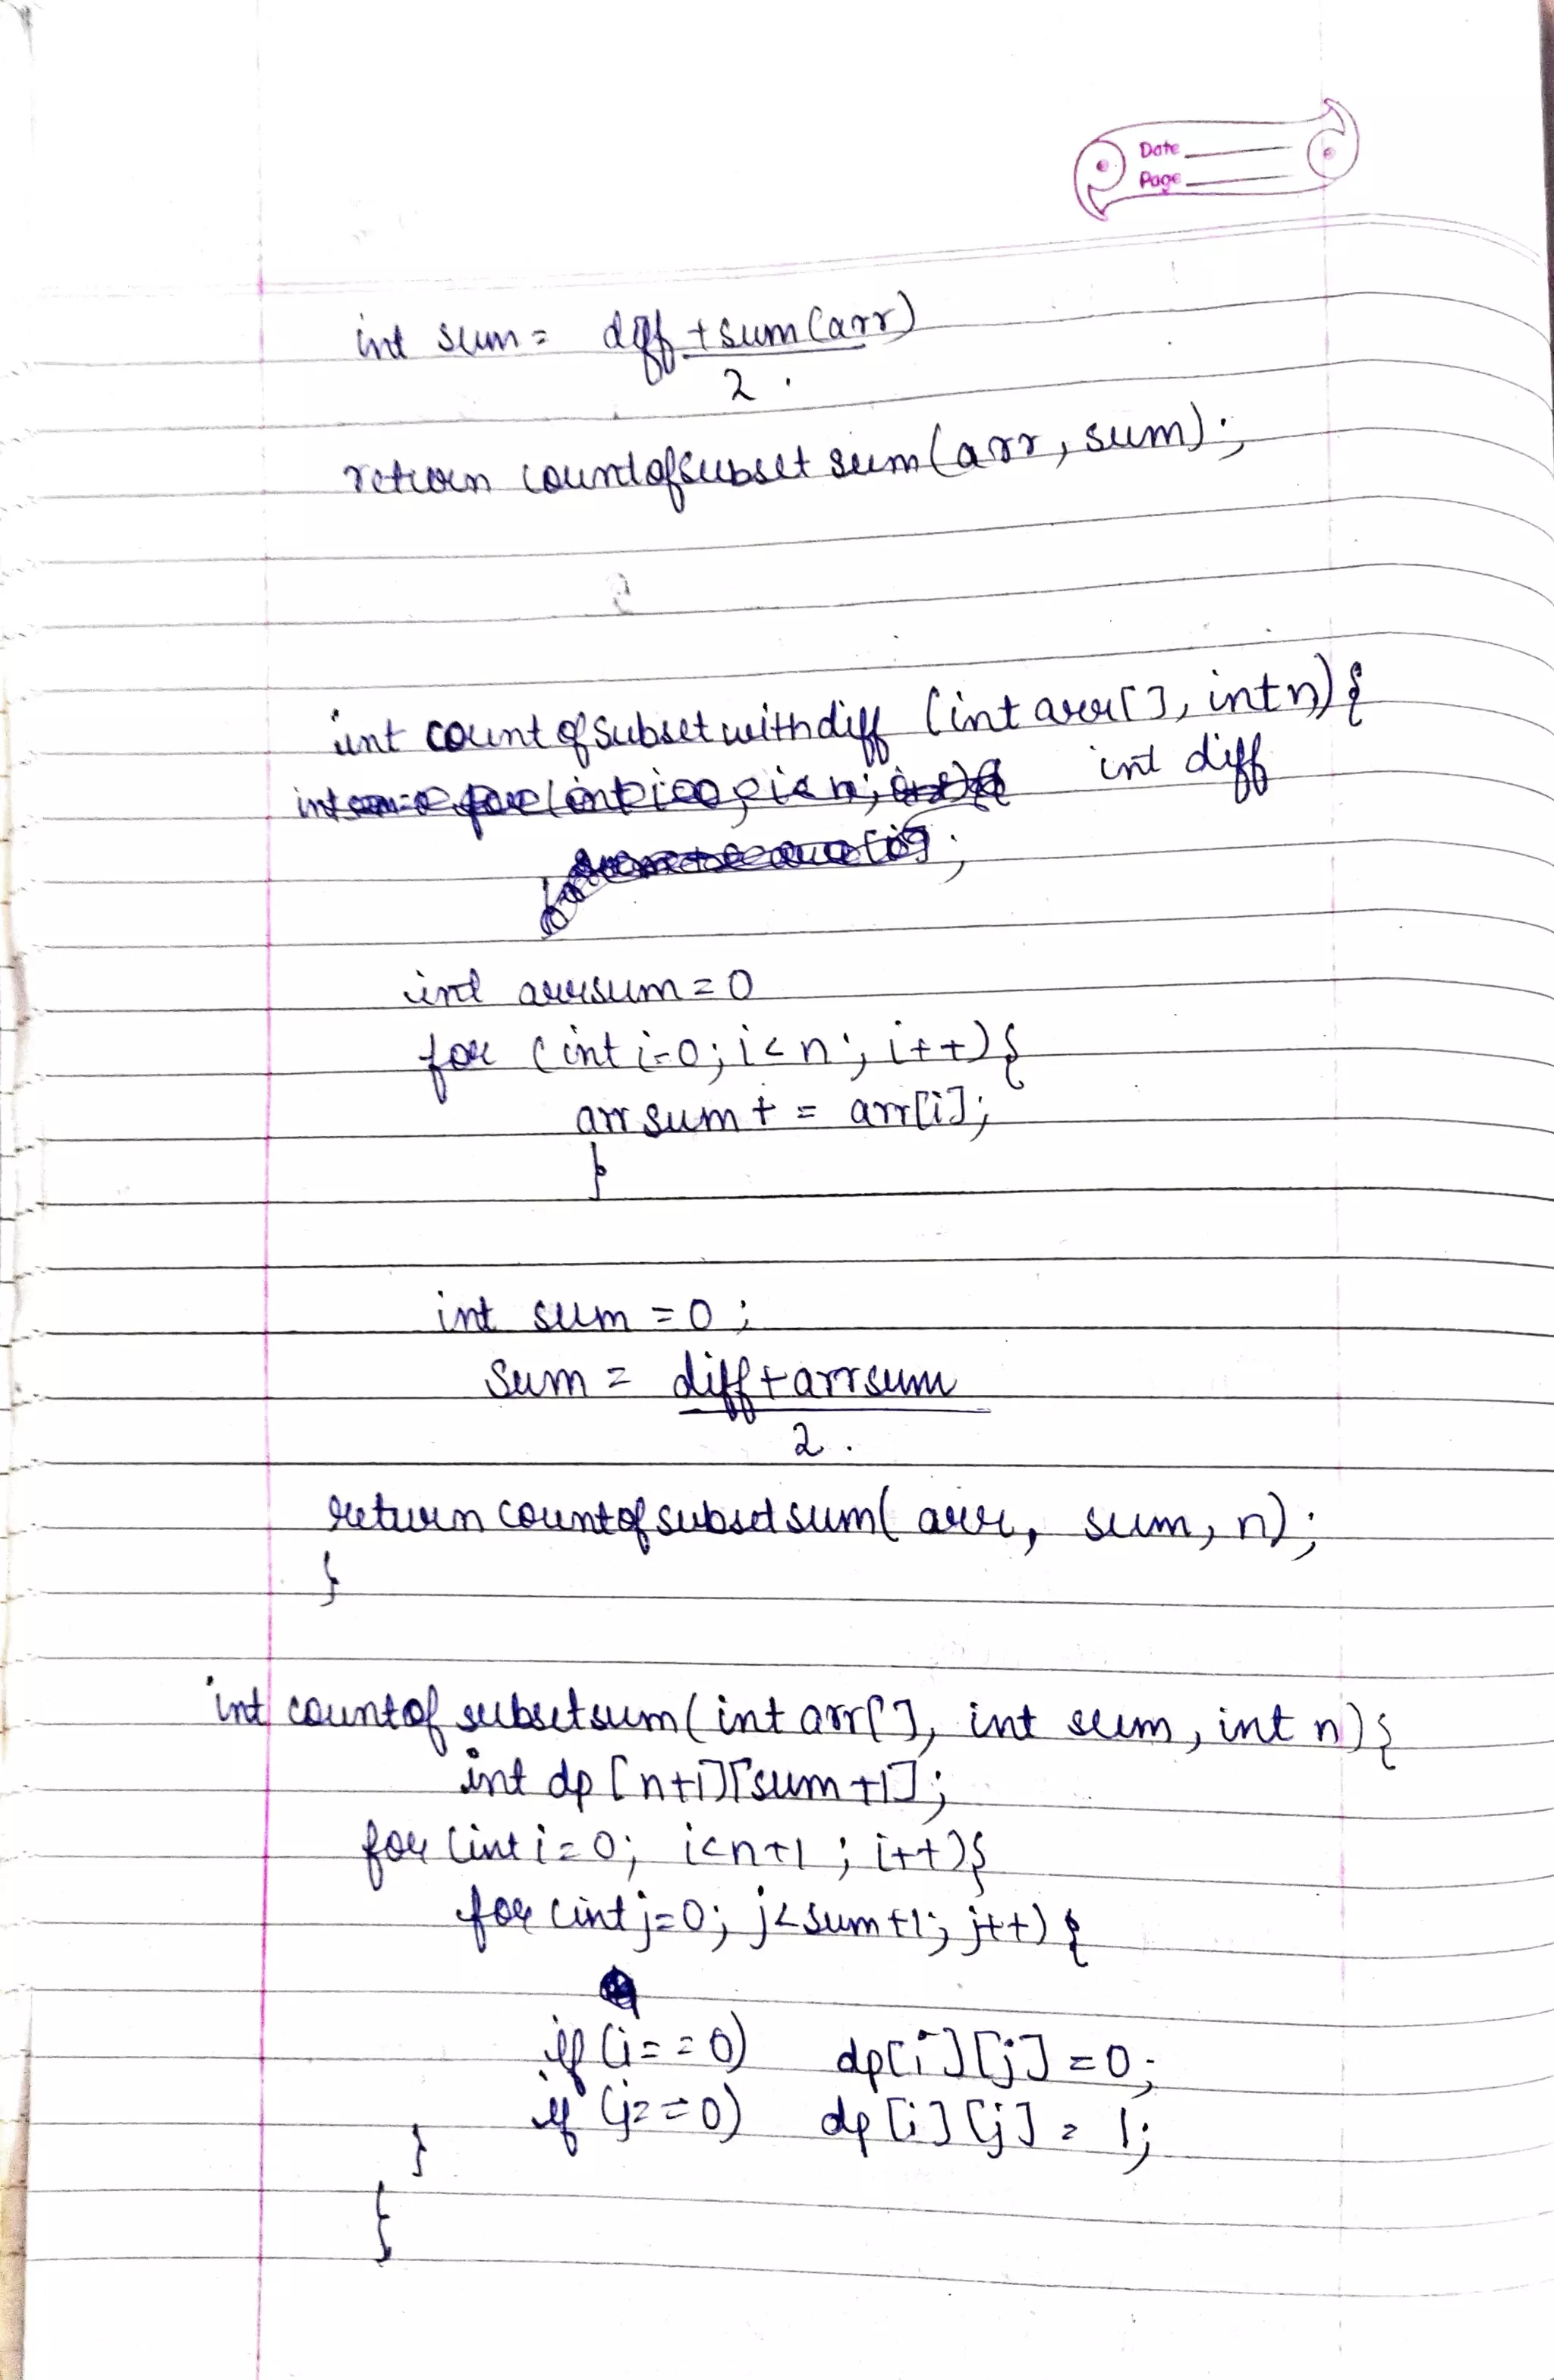 Date
Page
int sum = diff + sum(arr)
2 .
return countofsubsetsum(arr, sum);
int countofsubsetwithdiff (int arr[], int n) {
int diff
int arrsum = 0
for (int i=0; i<n; i++) {
arrsum += arr[i];
}
int sum = 0;
sum = diff + arrsum
2 .
return countofsubsetsum( arr, sum, n);
}
int countofsubsetsum( int arr[], int sum, int n) {
int dp [n+1][sum+1];
for (int i=0; i<n+1; i++) {
for (int j=0; j<sum+1; j++) {
if (i==0) dp[i][j] = 0;
if (j==0) dp[i][j] = 1;
}
}